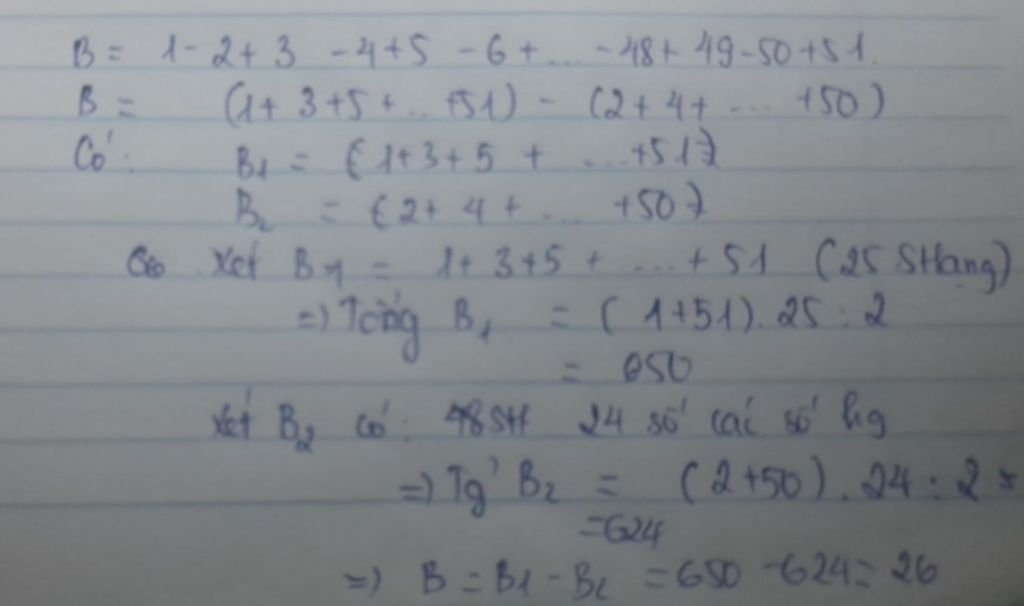 B = 1 - 2 + 3 - 4 + 5 - 6 + ... - 48 + 49 - 50 + 51.
B = (1 + 3 + 5 + ... + 51) - (2 + 4 + ... + 50)
Có: B1 = (1 + 3 + 5 + ... + 51)
B2 = (2 + 4 + ... + 50)
Xét B1 = 1 + 3 + 5 + ... + 51 (25 SHạng)
=> Tổng B1 = (1 + 51) . 25 : 2
= 650
Xét B2 có: 48 SH 24 số các số hg
=> Tg B2 = (2 + 50) . 24 : 2 =
= 624
=> B = B1 - B2 = 650 - 624 = 26